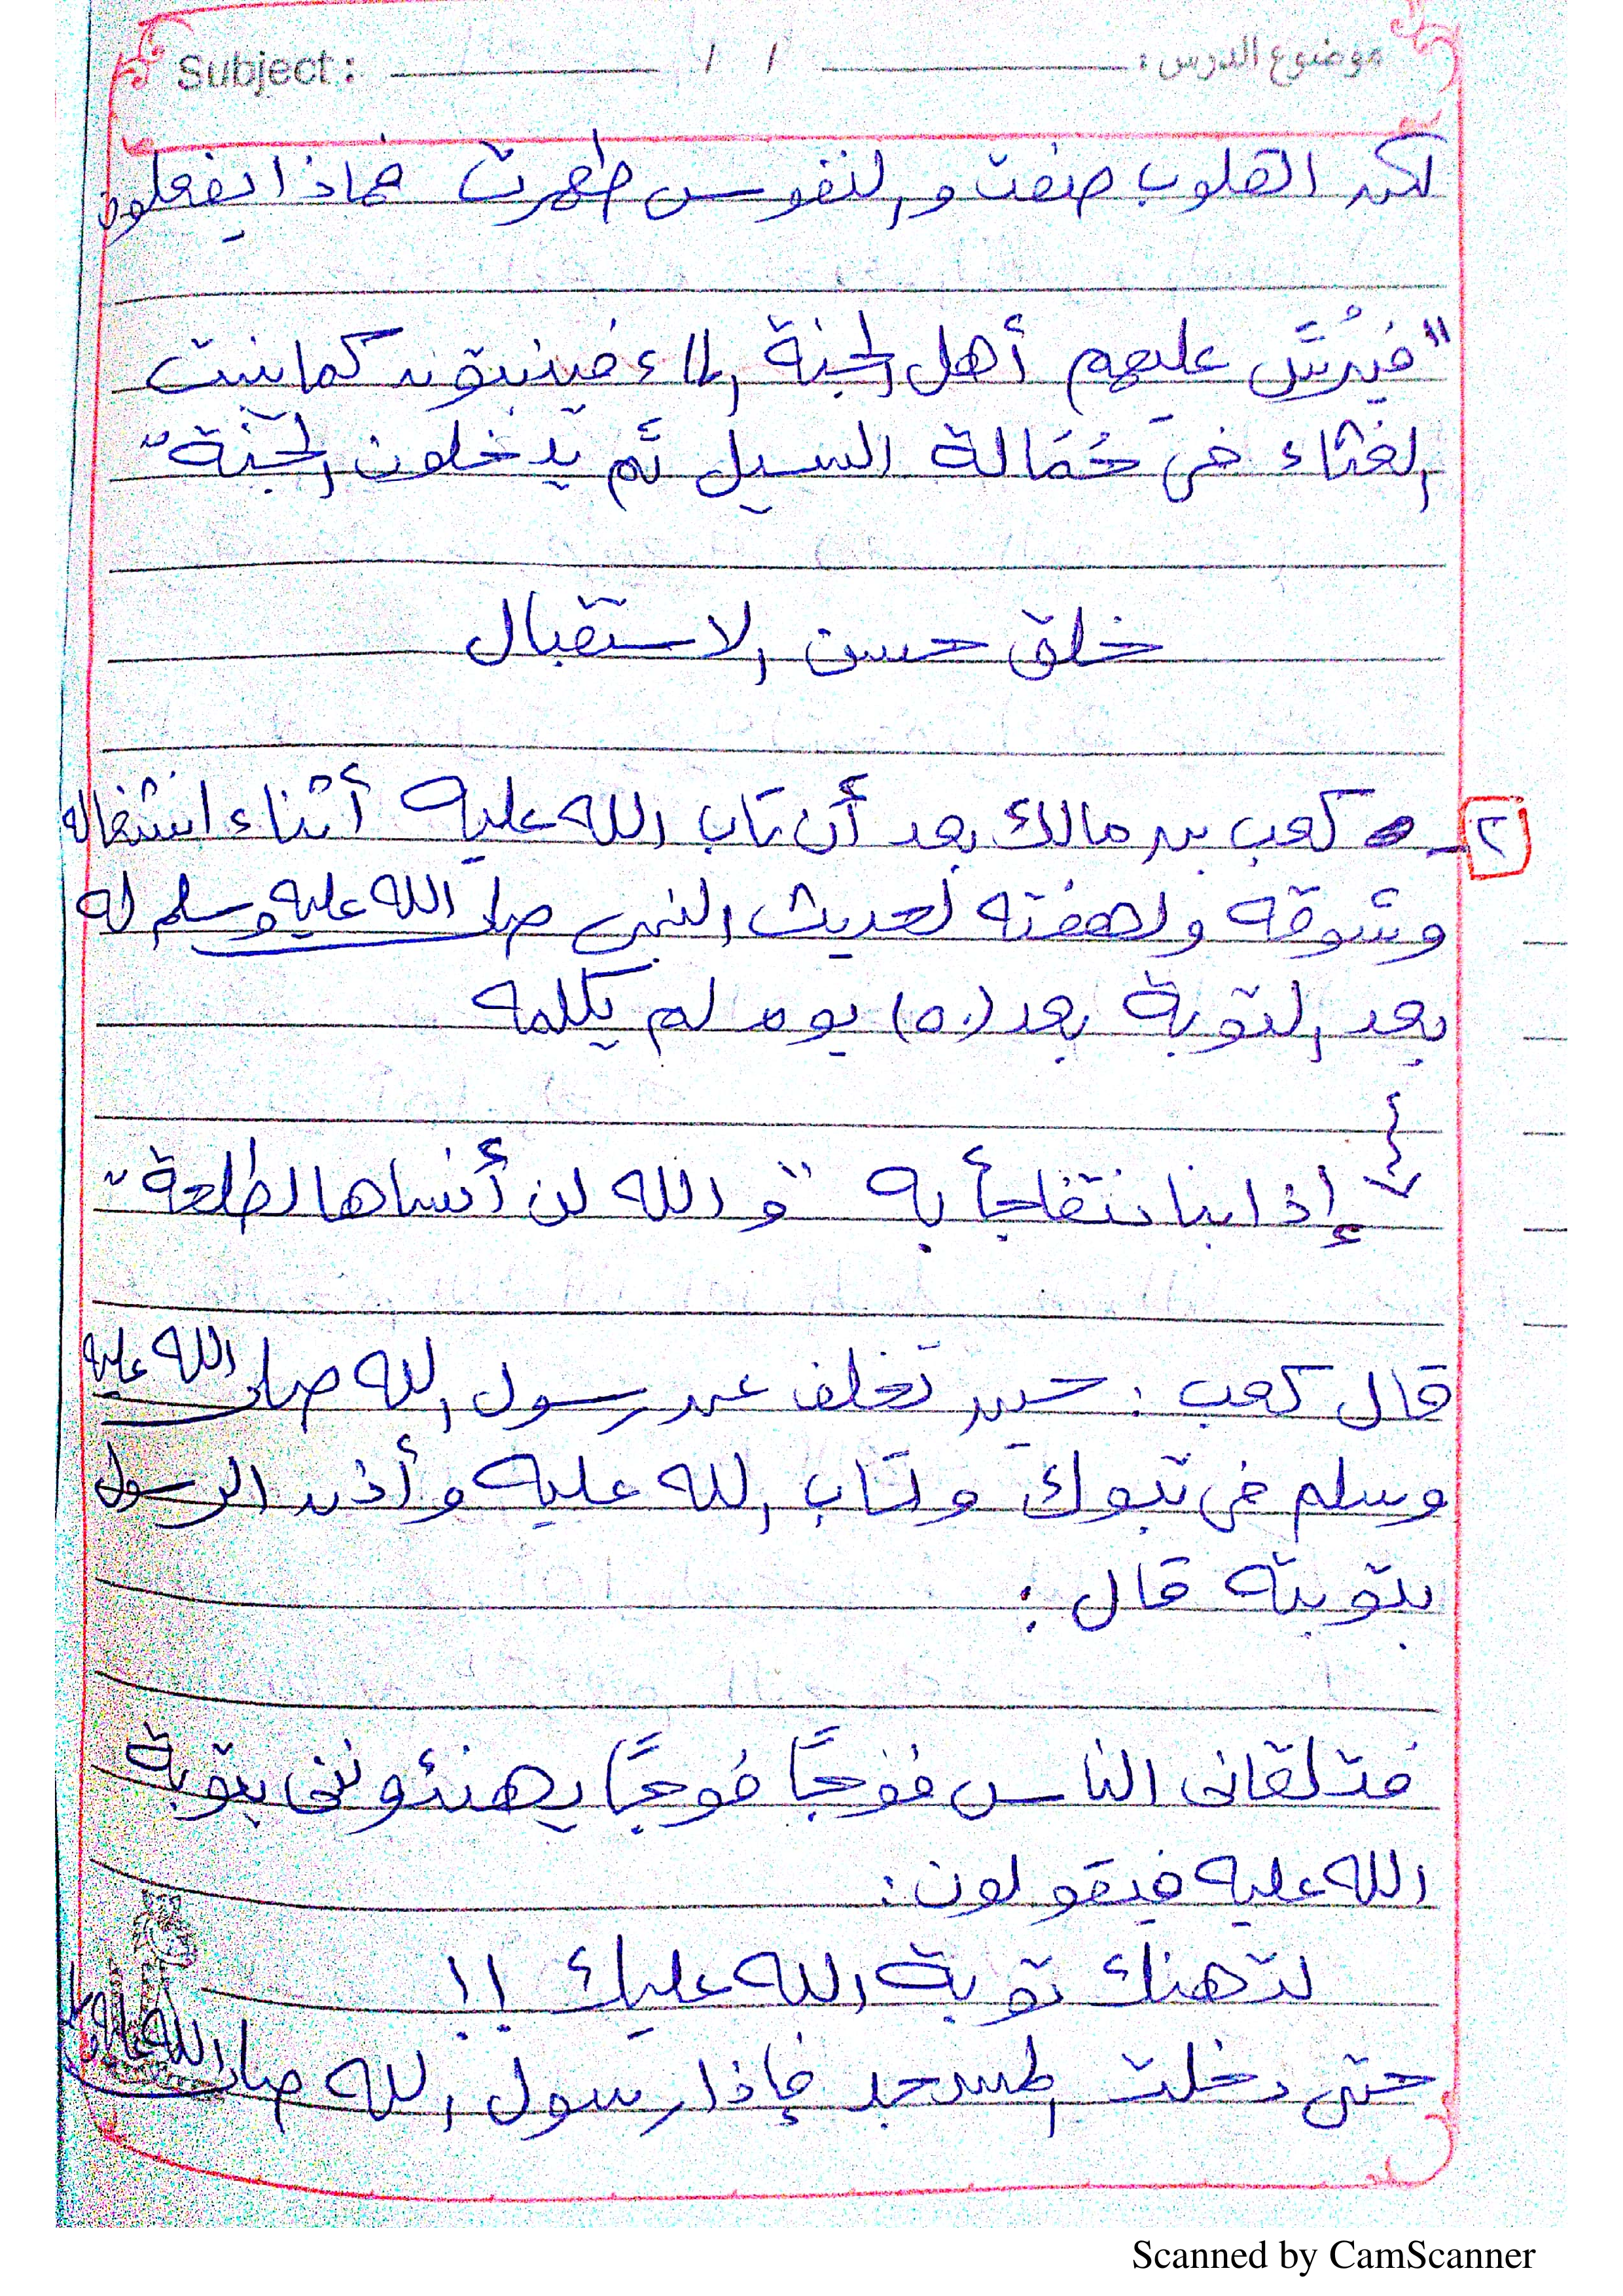 Subject: / / موضوع الدرس:
لكن القلوب صفت والنفوس طهرت فماذا يفعلون
"فيُرشَّ عليهم أهل الجنة الماء فينبتون كما ينبت
الغثاء في حُمَالة السيل ثم يدخلون الجنة"
خلق حسن الاستقبال
٢- كعب بن مالك بعد أن تاب الله عليه أثناء انشغاله
وشوقه ولهفته لحديث النبي صلى الله عليه وسلم له
بعد التوبة بعد (٥٠) يوم لم يكلمه
إذا بنا نتفاجأ به "و الله لن أنساها لطلحة"
قال كعب: حين تخلف عن رسول الله صلى الله عليه
وسلم في تبوك وتاب الله عليه وأذن الرسول
بتوبته قال:
فتلقاني الناس فوجًا فوجًا يهنئونني بتوبة
الله عليه فيقولون:
لتهنك توبة الله عليك !!
حتى دخلت المسجد فإذا رسول الله صلى الله عليه وسلم
Scanned by CamScanner